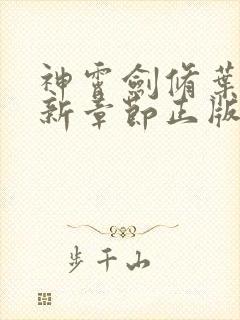 神霄劍脩葉
新章節正版
步千山